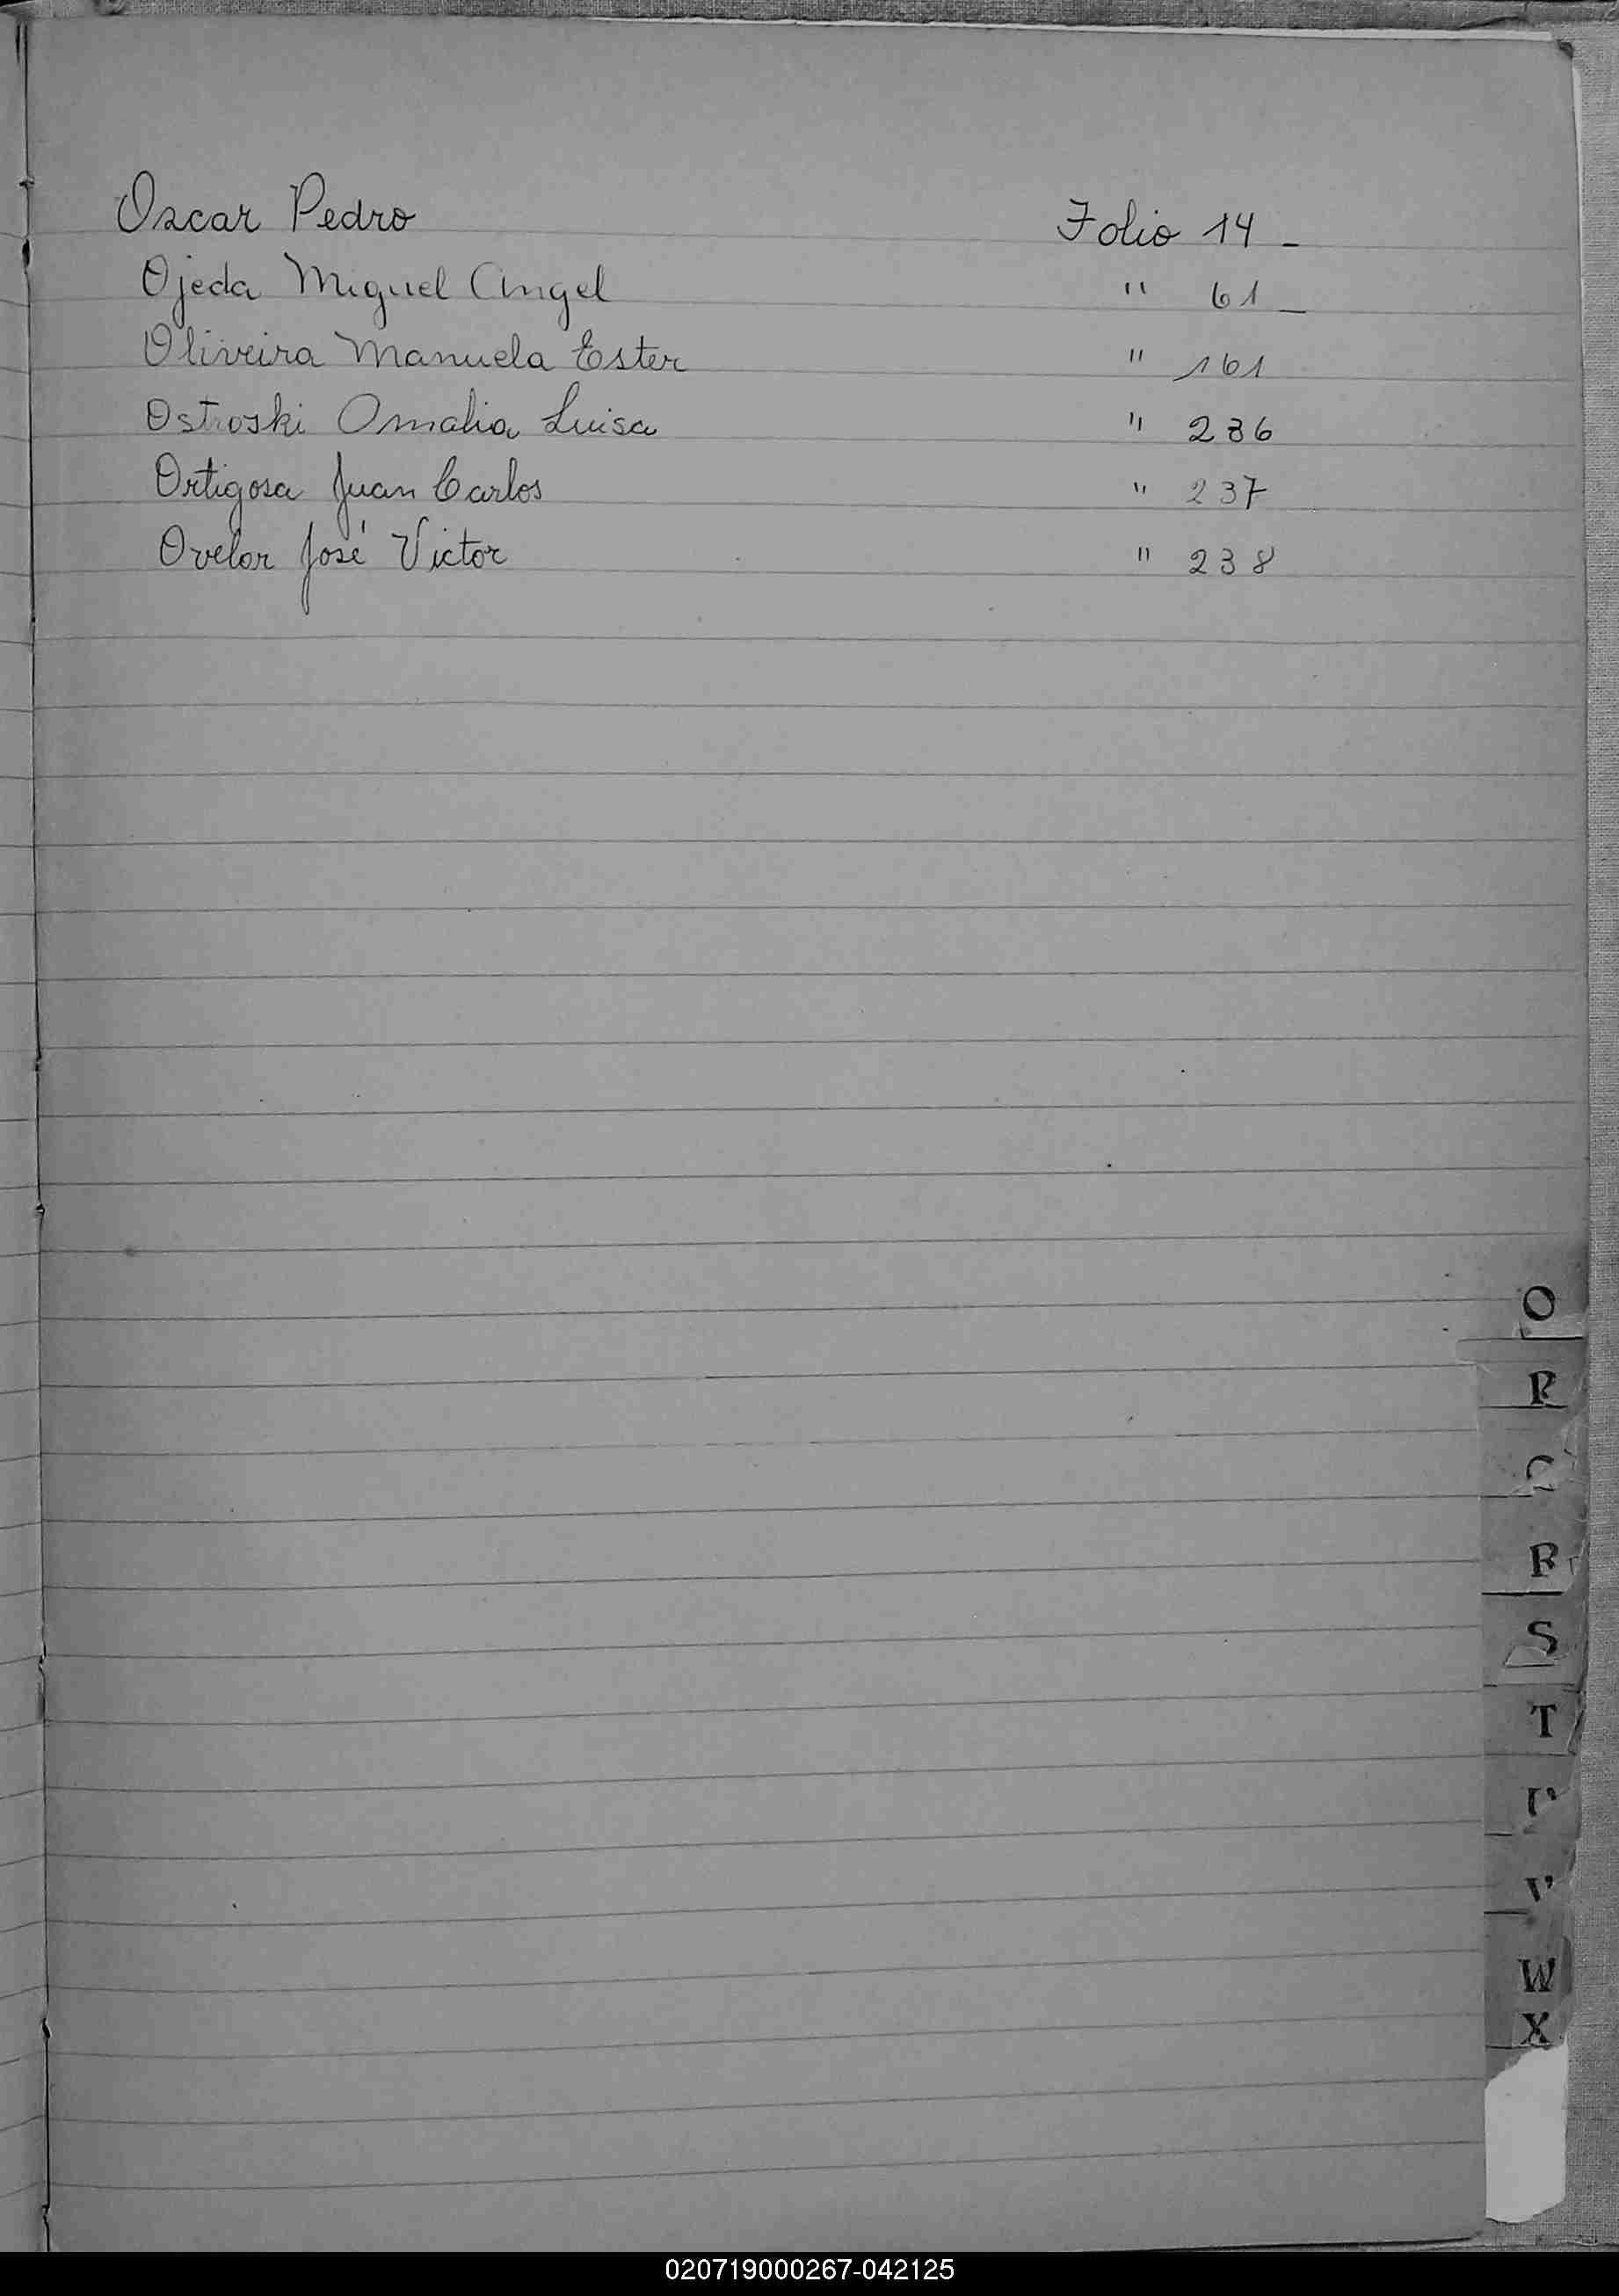 Oscar Pedro Folio 14 -
Ojeda Miguel Angel " 61 _
Oliveira Manuela Ester " 161
Ostroski Amalia Luisa " 236
Ortigosa Juan Carlos " 237
Ovelar José Victor " 238
O
P
Q
R
S
T
U
V
W
X
020719000267-042125